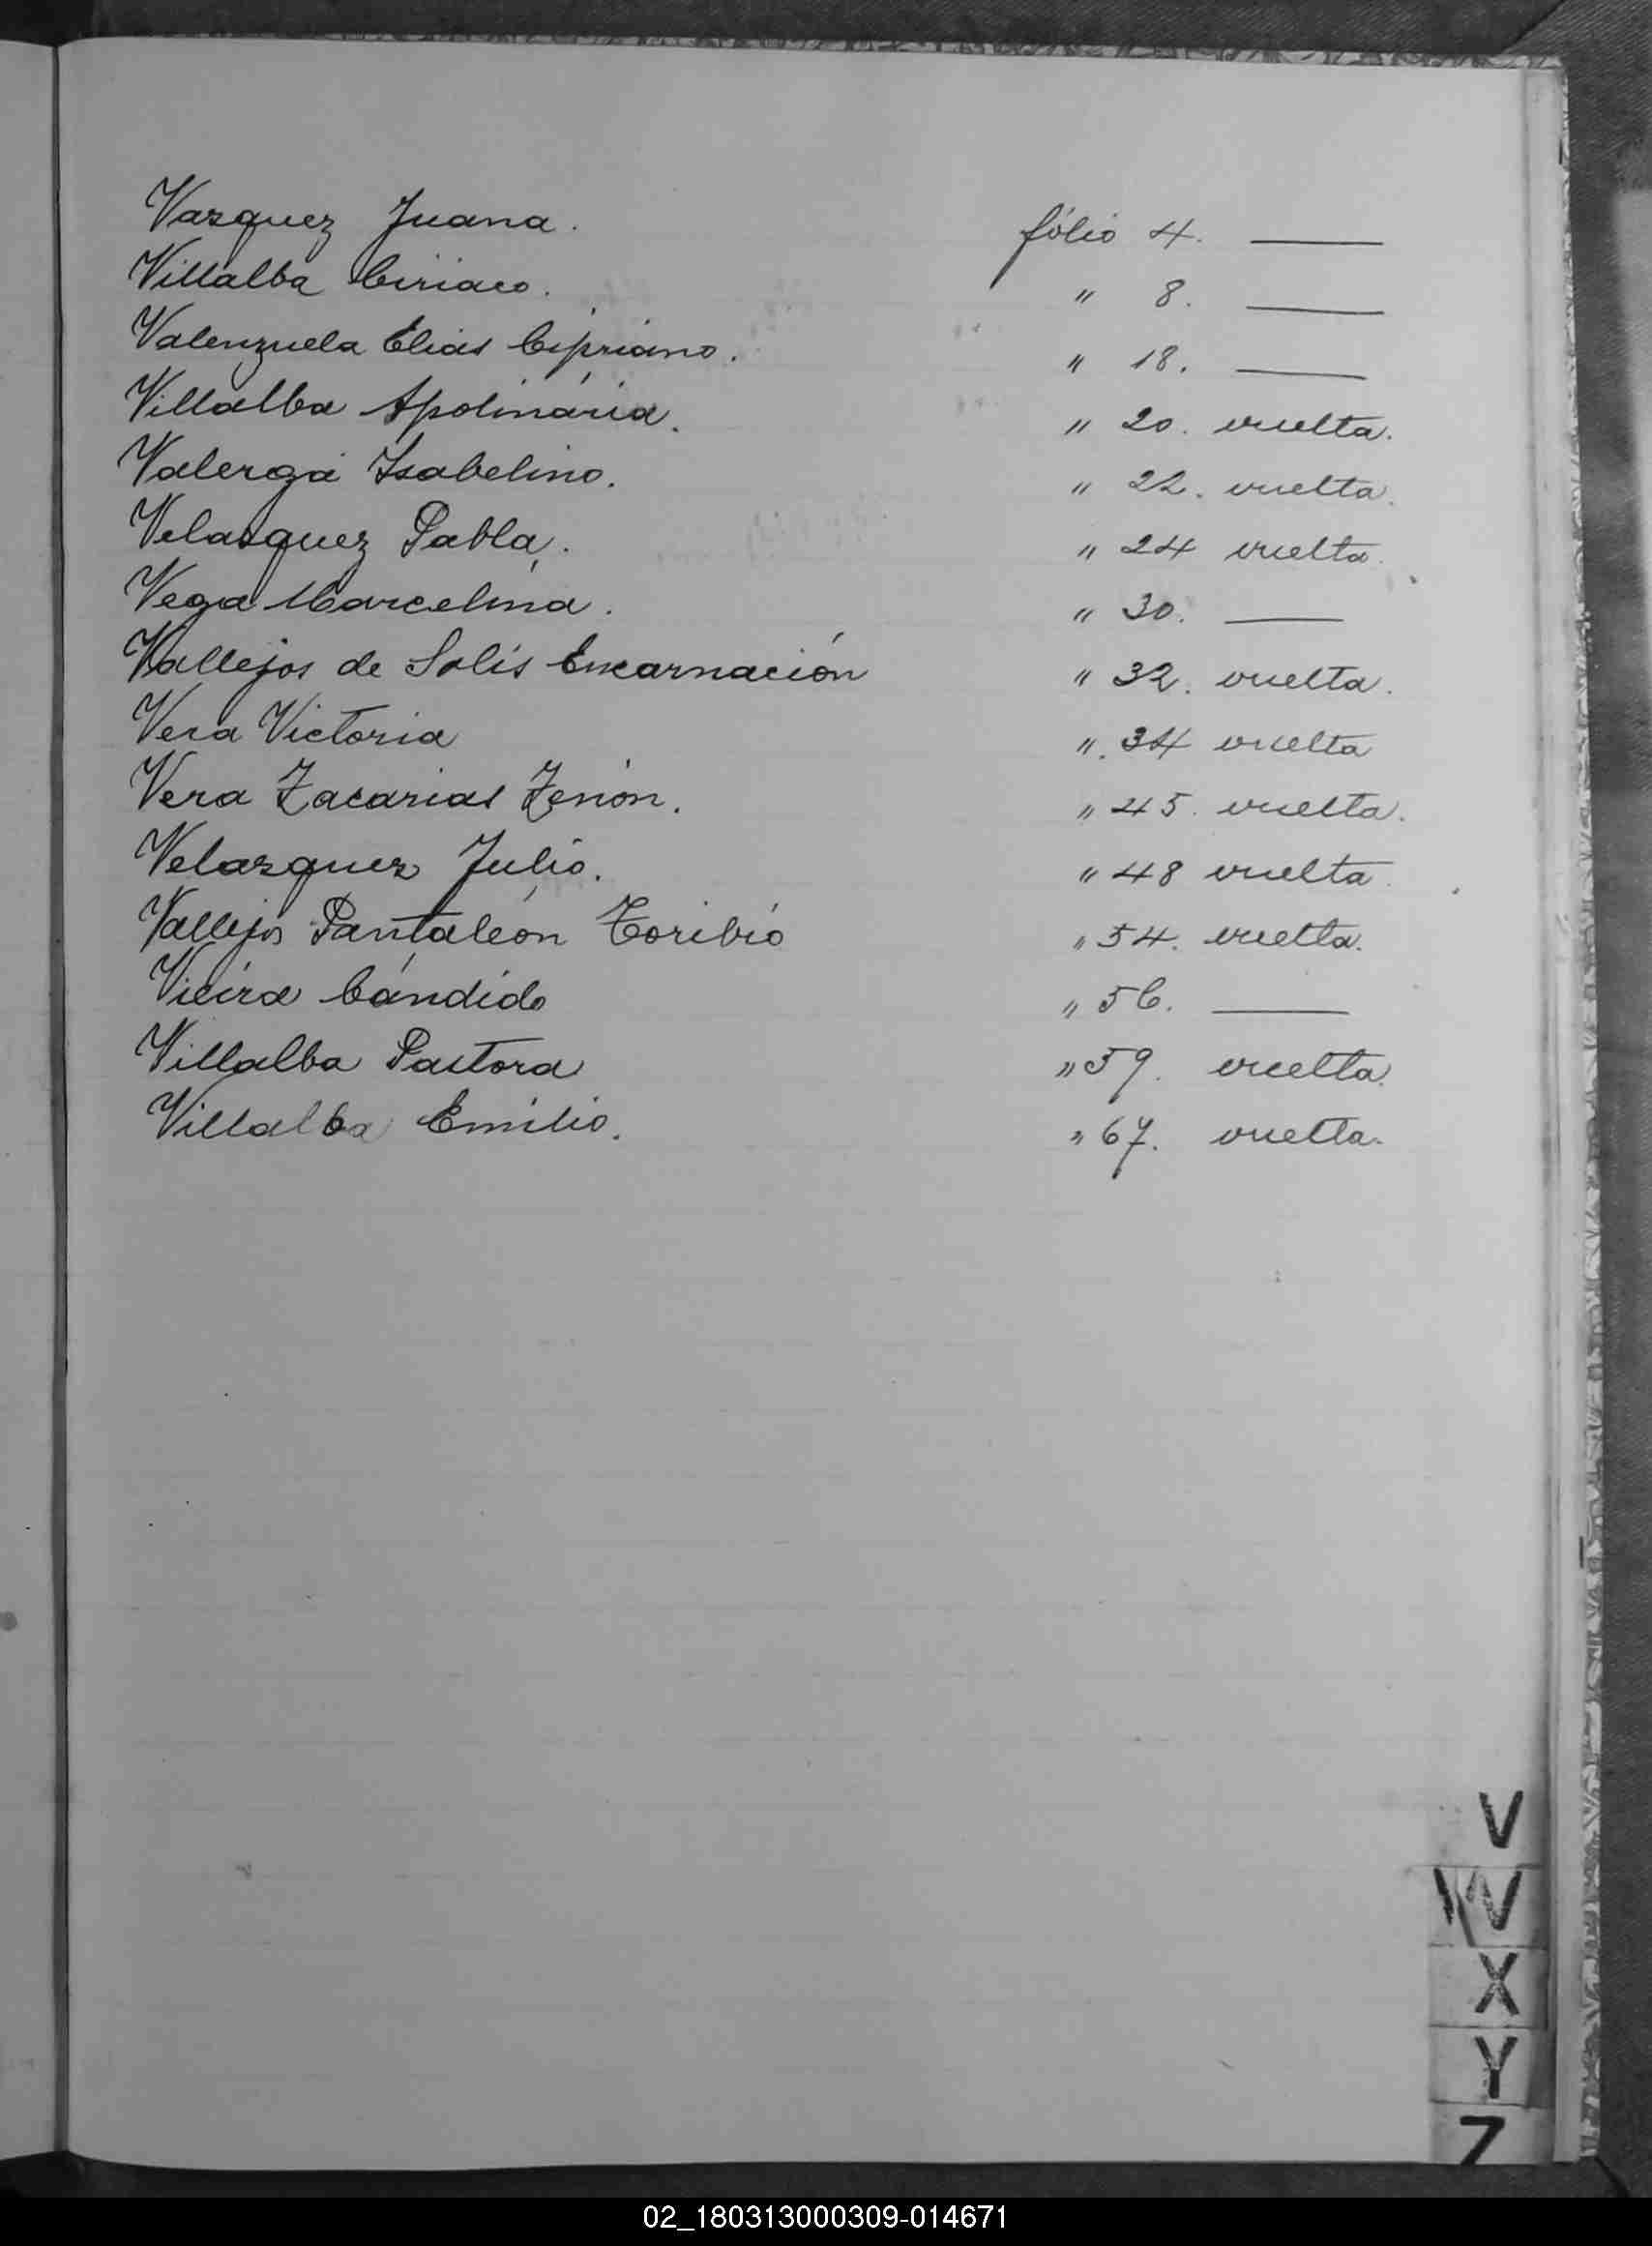 Vazquez Juana. fólio 4. ———
Villalba Ciriaco. " 8. ———
Valenzuela Elias Cipriano. " 18. ———
Villalba Apolinaria. " 20. vuelta.
Valerga Isabelino. " 22. vuelta.
Velasquez Pabla. " 24 vuelta.
Vega Marcelina. " 30. ———
Vallejos de Solis Encarnación " 32. vuelta.
Vera Victoria ". 34 vuelta
Vera Zacarias Zenón. " 45. vuelta.
Velazquez Julio. " 48 vuelta.
Vallejos Pantaleón Toribio " 54. vuelta.
Vieira Cándido " 56. ———
Villalba Pastora " 59. vuelta.
Villalba Emilio. " 67. vuelta.
V
W
X
Y
Z
02_180313000309-014671